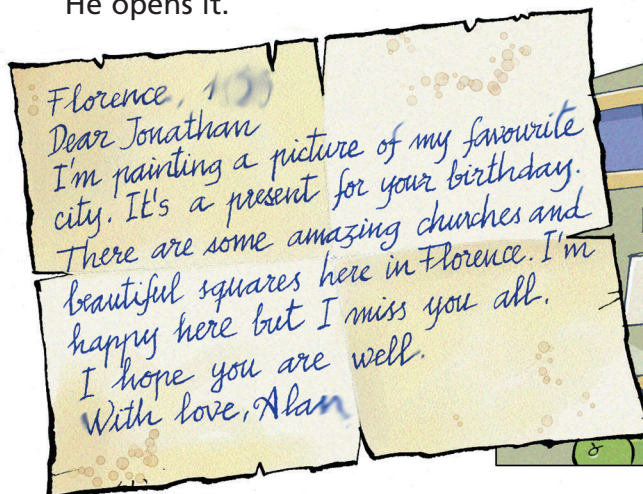 He opens it.
Florence,
Dear Jonathan
I'm painting a picture of my favourite
city. It's a present for your birthday.
There are some amazing churches and
beautiful squares here in Florence. I'm
happy here but I miss you all.
I hope you are well.
With love, Alan